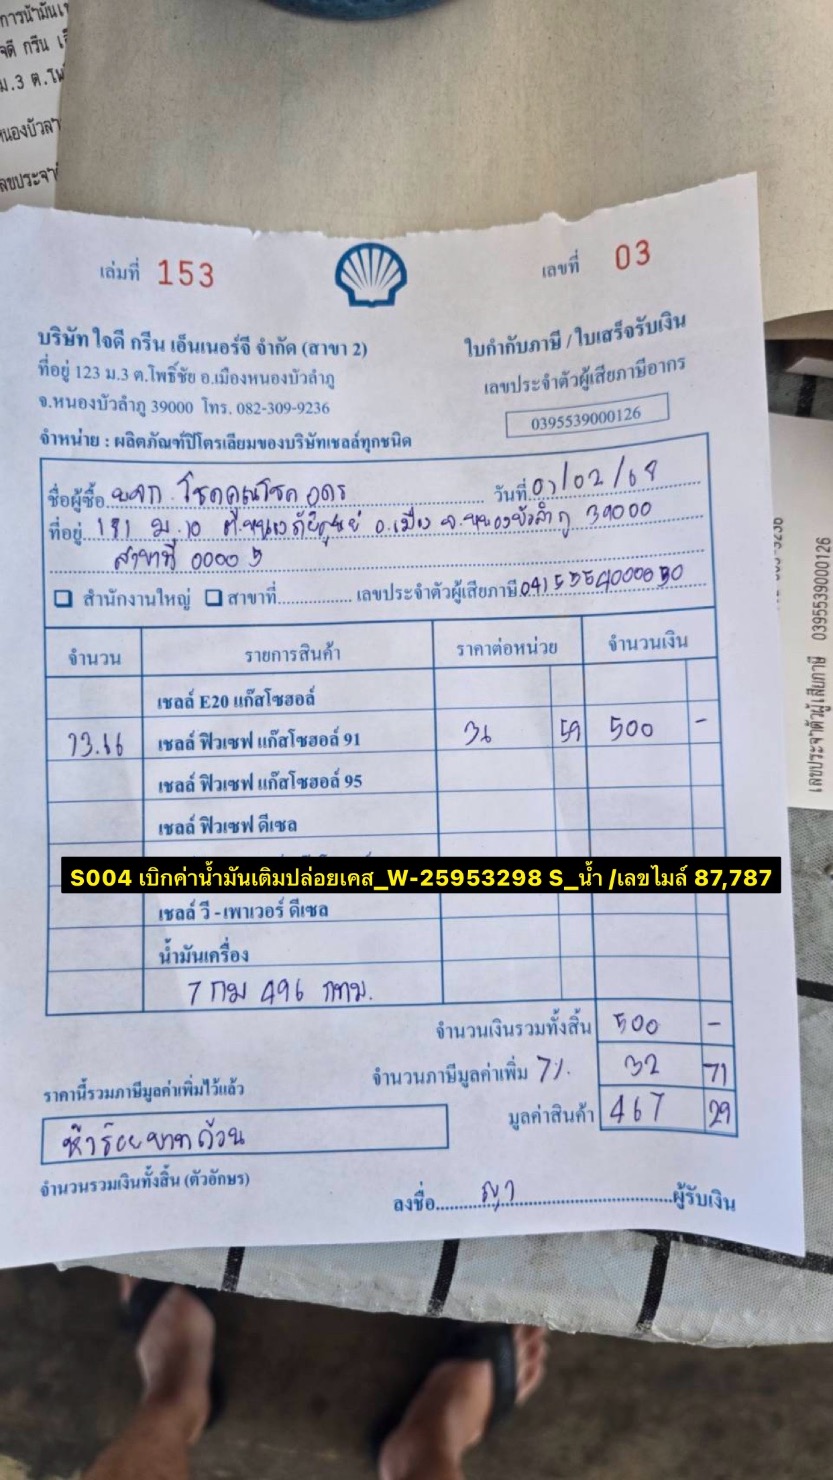 การน้ำมันเ
จดี กรีน เ
ม.3 ต.โพ
หนองบัวลำ
เลขประจำ
เล่มที่ 153
เลขที่ 03
บริษัท ใจดี กรีน เอ็นเนอร์จี จำกัด (สาขา 2)
ใบกำกับภาษี / ใบเสร็จรับเงิน
ที่อยู่ 123 ม.3 ต.โพธิ์ชัย อ.เมืองหนองบัวลำภู
เลขประจำตัวผู้เสียภาษีอากร
จ.หนองบัวลำภู 39000 โทร. 082-309-9236
0395539000126
จำหน่าย : ผลิตภัณฑ์ปิโตรเลียมของบริษัทเชลล์ทุกชนิด
ชื่อผู้ซื้อ บจก. โชคคูณโชค อุดร วันที่ 07/02/69
ที่อยู่ 181 ม.10 ต.หนองภัยศูนย์ อ.เมือง จ.หนองบัวลำภู 39000
สาขาที่ 00005
สำนักงานใหญ่ สาขาที่ เลขประจำตัวผู้เสียภาษี
จำนวน รายการสินค้า ราคาต่อหน่วย จำนวนเงิน
เชลล์ E20 แก๊สโซฮอล์
13.66 เชลล์ ฟิวเซฟ แก๊สโซฮอล์ 91 36 59 500 -
เชลล์ ฟิวเซฟ แก๊สโซฮอล์ 95
เชลล์ ฟิวเซฟ ดีเซล
S004 เบิกค่าน้ำมันเติมปล่อยเคส_W-25953298 S_น้ำ /เลขไมล์ 87,787
เชลล์ วี - เพาเวอร์ ดีเซล
น้ำมันเครื่อง
7 กม 496 กทม.
จำนวนเงินรวมทั้งสิ้น 500 -
จำนวนภาษีมูลค่าเพิ่ม 7% 32 71
ราคานี้รวมภาษีมูลค่าเพิ่มไว้แล้ว
มูลค่าสินค้า 467 29
ห้าร้อยบาทถ้วน
จำนวนรวมเงินทั้งสิ้น (ตัวอักษร)
ลงชื่อ ญา ผู้รับเงิน
เลขประจำตัวผู้เสียภาษี 0395539000126